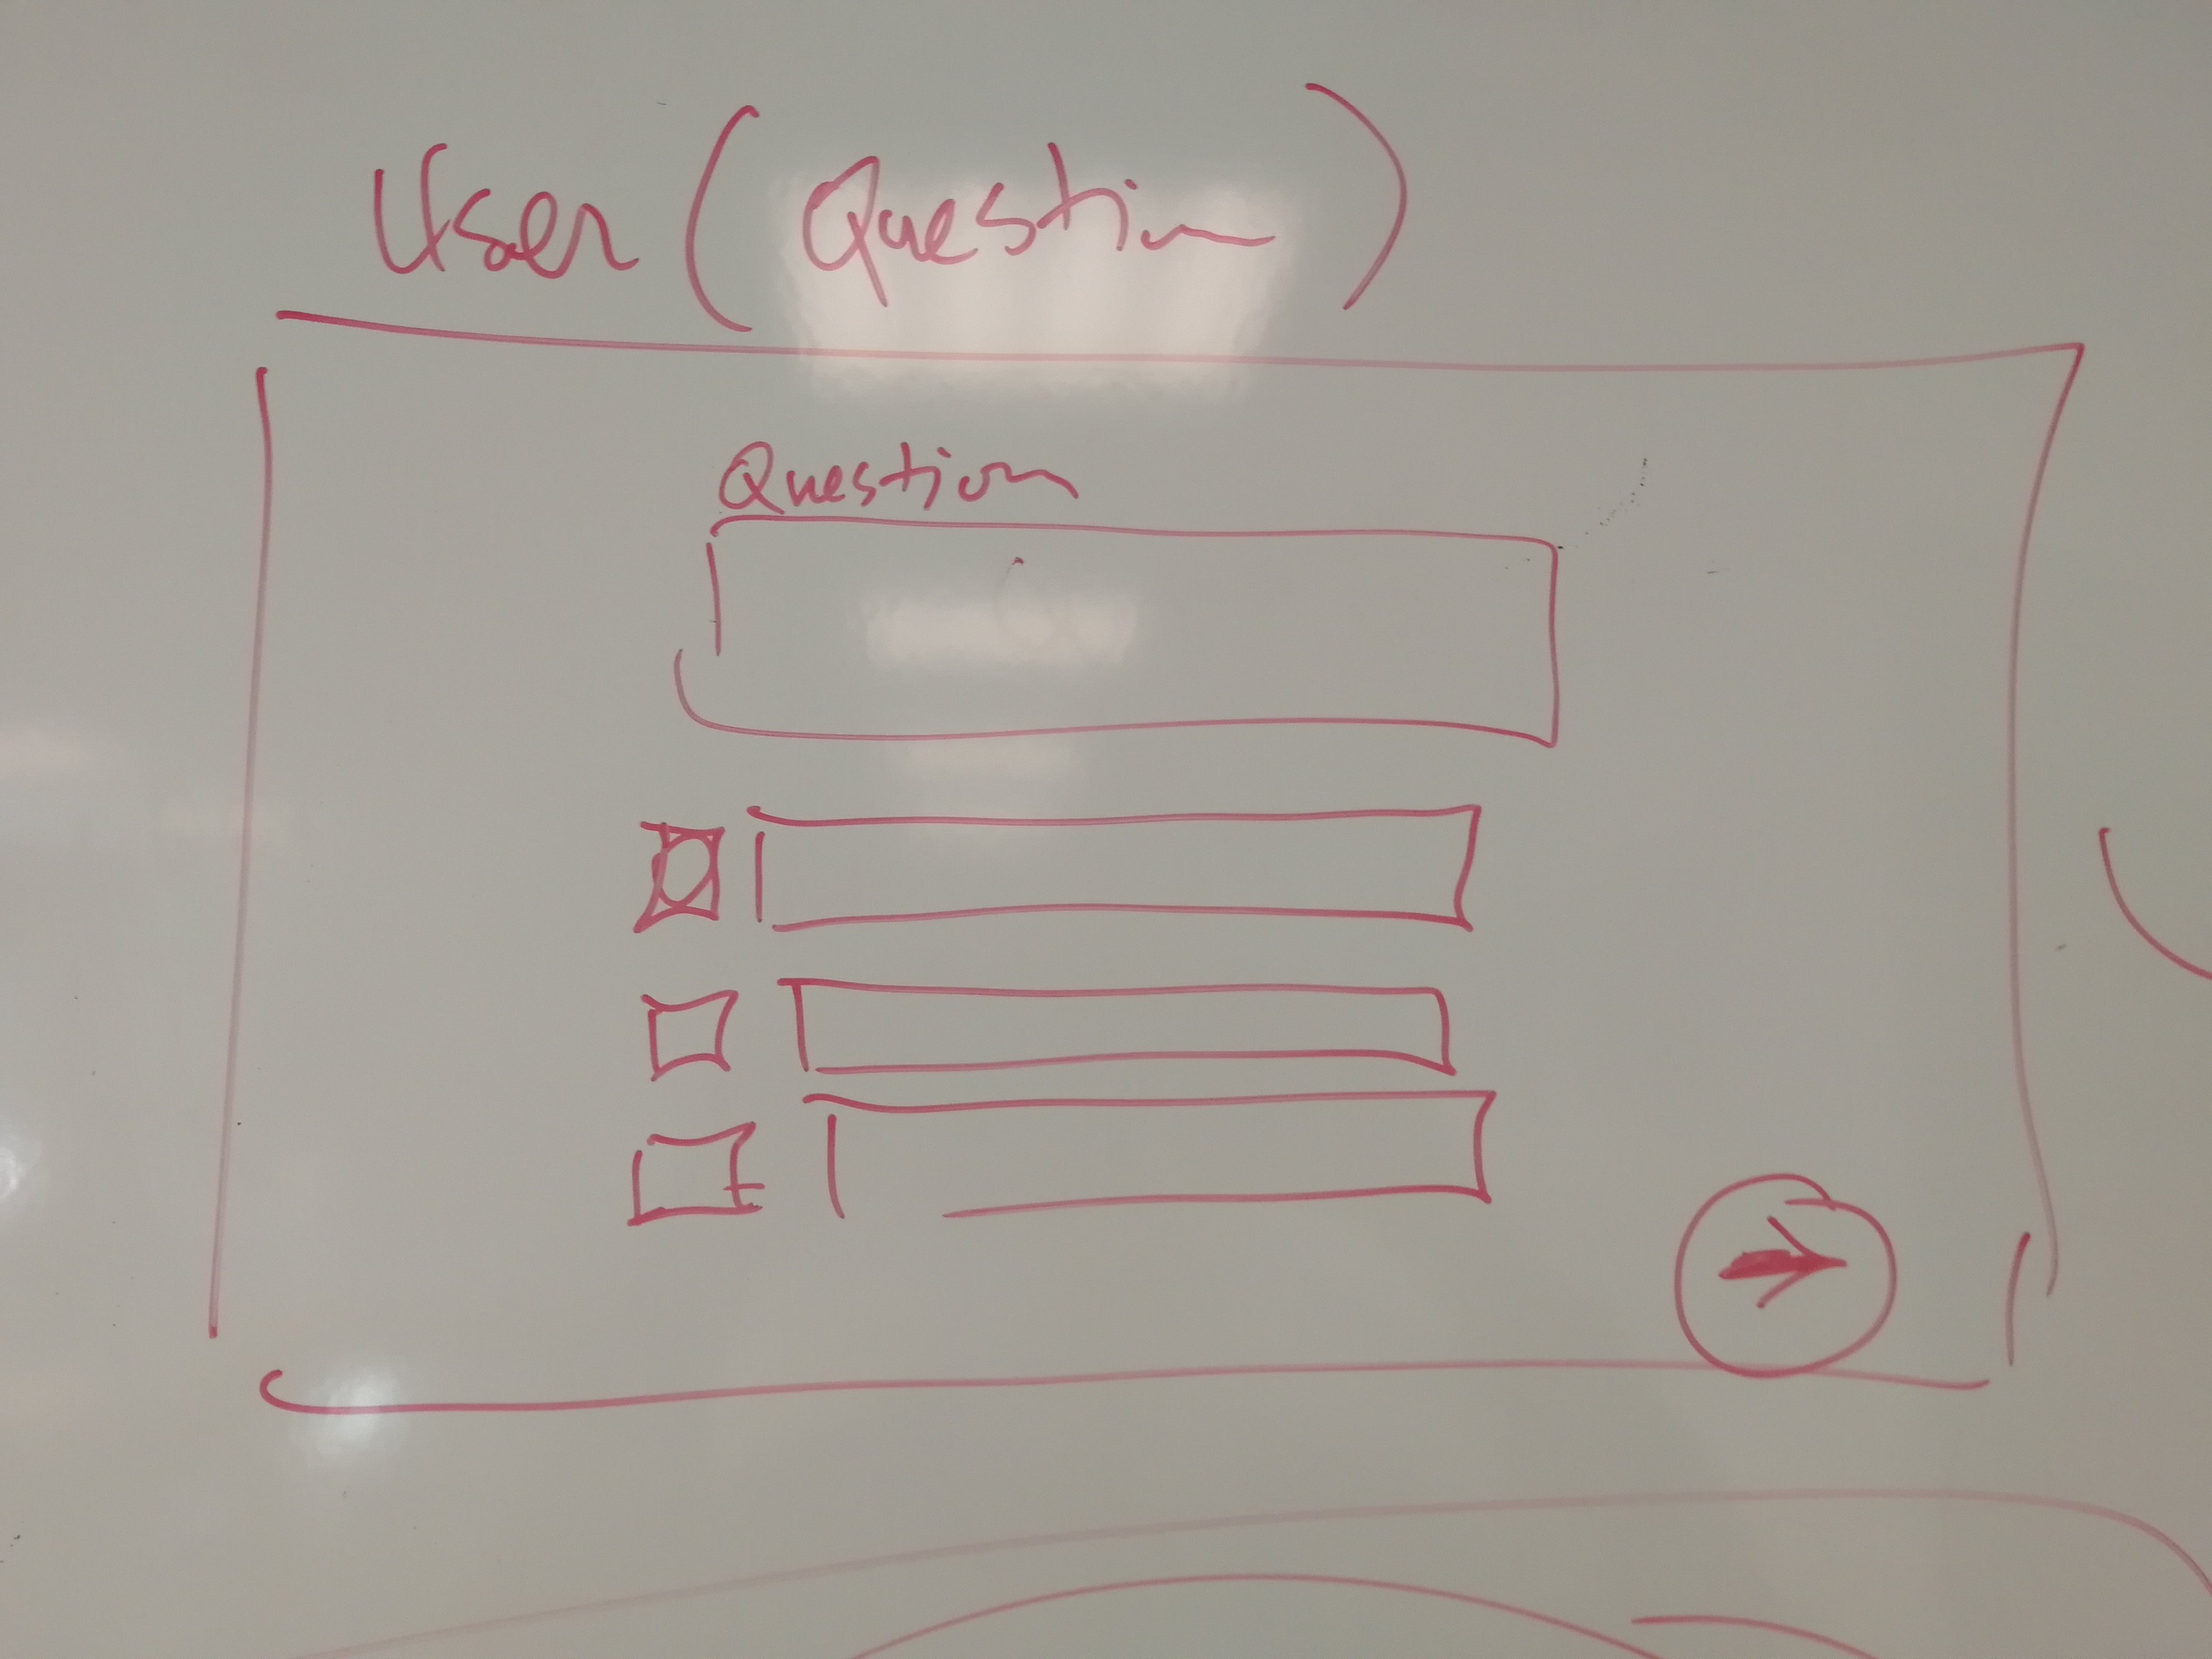 User (Question)
Question